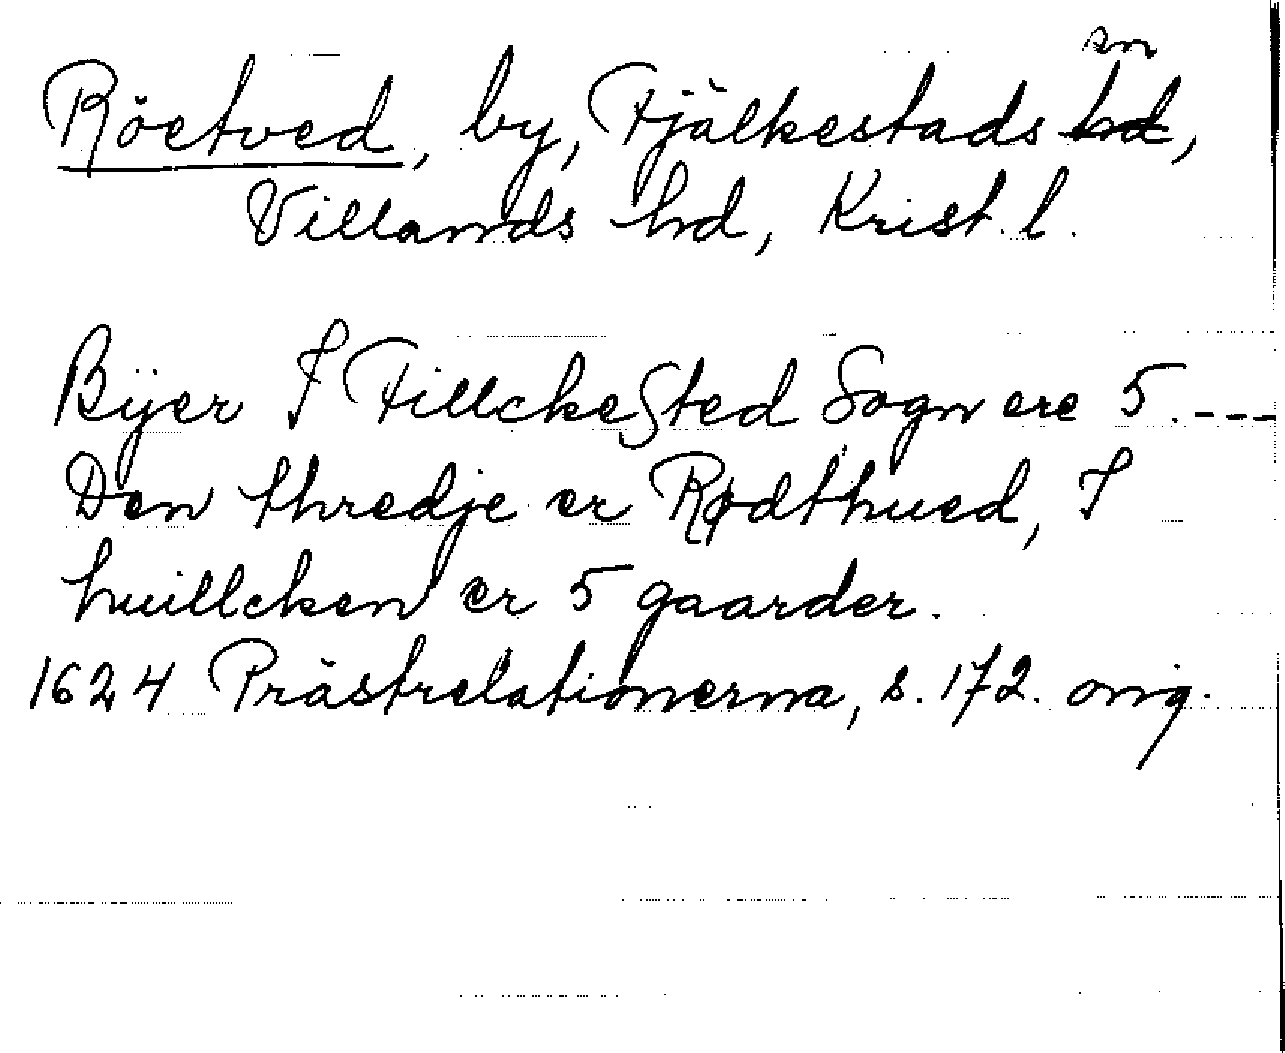 Röetved, by, Fjälkestads sn hd,
Villands hd, Krist. l.
Bÿer I Fillckested Sogn ere 5. ---
Den thredje er Rødthued, I
huillcken er 5 gaarder.
1624 Prästrelationerna, s. 172. orig.